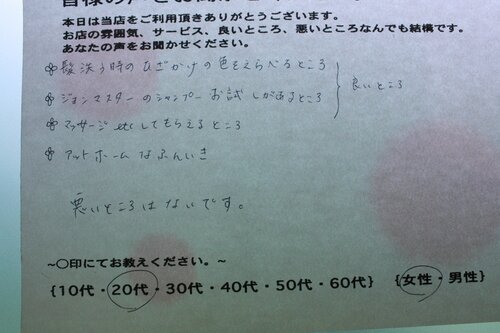 皆様の声をお聞かせ
本日は当店をご利用頂きありがとうございます。
お店の雰囲気、サービス、良いところ、悪いところなんでも結構です。
あなたの声をお聞かせください。
髪洗う時のひざかけの色をえらべるところ
ジョンマスターのシャンプーお試しがあるところ
良いところ
マッサージ etc してもらえるところ
アットホームなふんいき
悪いところはないです。
~○印にてお教えください。~
{10代・20代・30代・40代・50代・60代} {女性・男性}